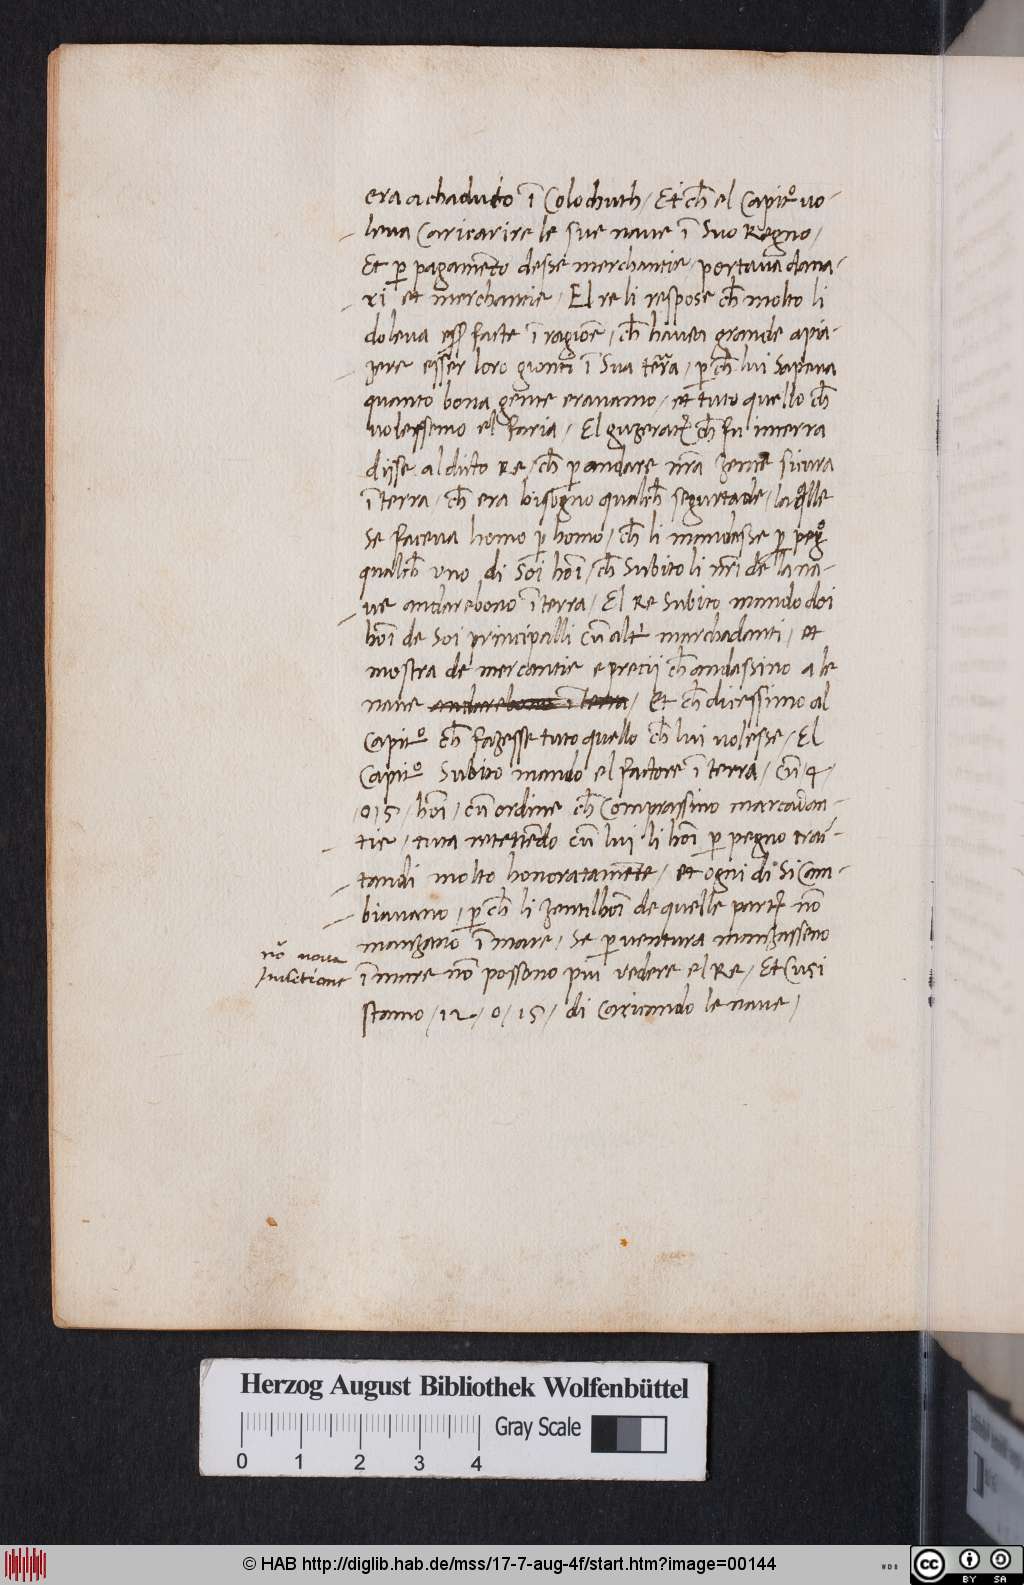 era achaduto ĩ Colochuth / Et ch̃ el Capitᵒ vo-
leva Caricarire le sue nave ĩ Suo Regno /
Et ꝑ pagamẽto desse merchantie / portava dana-
ri et merchantie / El re li respose ch̃ molto li
doleva facte ĩ ragiõe / ch̃ haveа grande apia-
zere esser loro gionti ĩ Sua terra / ꝑch̃ lui Sapeva
quanto bona gente eravamo / et tuto quello ch̃
volessemo el faria / El guzerat ch̃ fu interra
disse al dicto Re / ch̃ ꝑ andare nr̃a zente sicura
ĩ terra / ch̃ era bisogno qualch̃ segurtade / la
se faceva homo ꝑ homo / ch̃ li mandasse ꝑ
qualch̃ uno di Soi hoĩ / ch̃ Subito li nr̃i de la na-
ve andarebono ĩ terra / El Re Subito mando doi
hoĩ de Soi principalli cũ altri marchadanti / et
mostra de mercantie e precii ch̃ andassino a le
nave andarebono ĩ terra / Et ch̃ dicessimo al
Capitᵒ ch̃ fazesse tuto quello ch̃ lui volesse / El
Capitᵒ Subito mando el factore ĩ terra / cũ / 4 /
o / 5 / hoĩ / cũ ordine ch̃ Comprassino marcadan-
tie / tuta cũ lui li hoĩ ꝑ pegno trac-
tandi molto honoratamẽte / et ogni di Si Cam-
biavano / ꝑch̃ li zentilhoĩ de quelle parti nõ
manzano ĩ mare / Se ꝑ ventura manzasseno
ĩ mare nõ possono piu vedere el Re / Et Cusi
stamo / 12 / o / 15 / di Caricando le nave /
nõ nove
Herzog August Bibliothek Wolfenbüttel
Gray Scale
0 1 2 3 4
© HAB http://diglib.hab.de/mss/17-7-aug-4f/start.htm?image=00144
WDB
cc BY SA